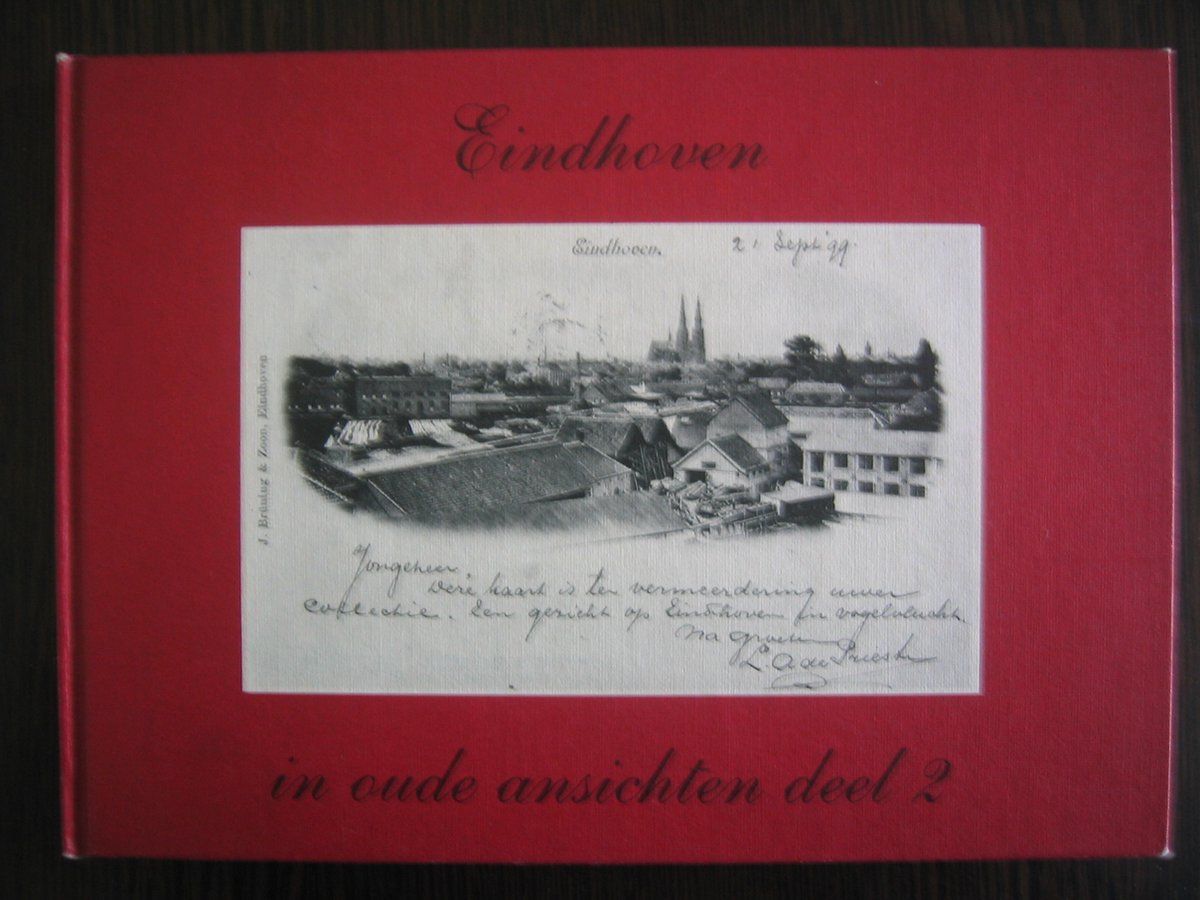 Eindhoven
Eindhoven.
21 Sept '99.
J. Brüning & Zoon, Eindhoven
Jongeheer
Deze kaart is ter vermeerdering uwer
collectie. Een gezicht op Eindhoven in vogelvlucht.
Na groeten
L. A de Priester
in oude ansichten deel 2